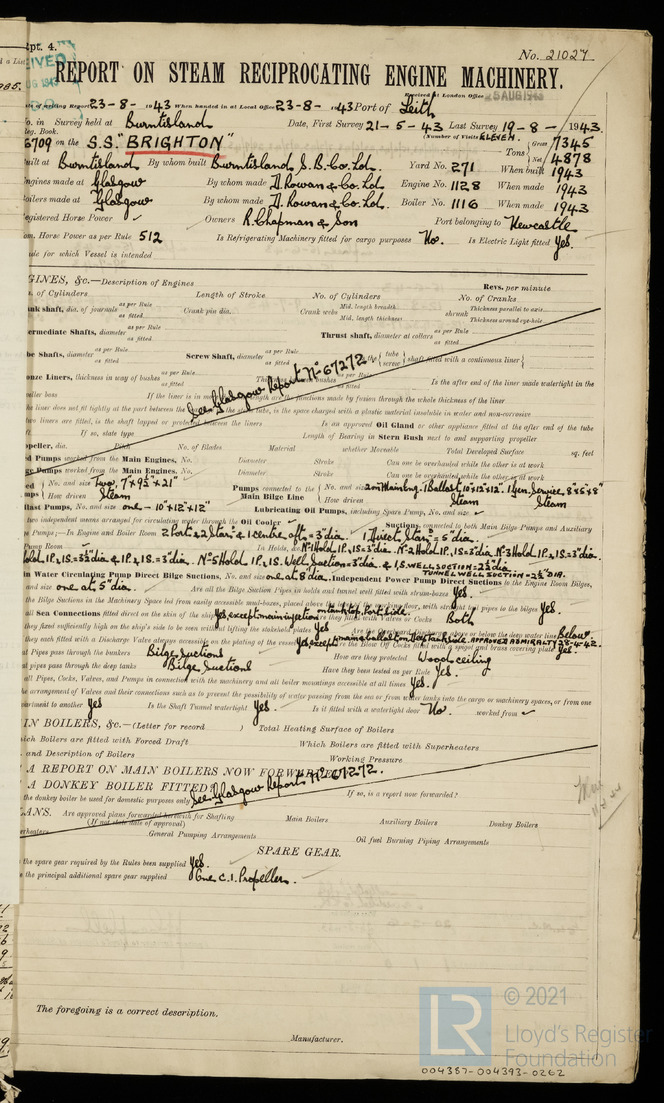 Rpt. 4.
No. 21027
REPORT ON STEAM RECIPROCATING ENGINE MACHINERY.
Received at London Office
25 AUG 1943
Report 23-8-1943 When handed in at Local Office 23-8-1943 Port of Leith
No. in Survey held at Burntisland Date, First Survey 21-5-43 Last Survey 19-8-1943
Reg. Book. (Number of Visits ELEVEN
6709 on the S.S. "BRIGHTON" Tons Gross 7345
Net 4878
Built at Burntisland By whom built Burntisland S.B. Co. Ld. Yard No. 271 When built 1943
Engines made at Glasgow By whom made D. Rowan & Co. Ld. Engine No. 1128 When made 1943
Boilers made at Glasgow By whom made D. Rowan & Co. Ld. Boiler No. 1116 When made 1943
Registered Horse Power Owners R. Chapman & Son Port belonging to Newcastle
Nom. Horse Power as per Rule 512 Is Refrigerating Machinery fitted for cargo purposes No. Is Electric Light fitted Yes.
Trade for which Vessel is intended
ENGINES, &c.—Description of Engines Revs. per minute
No. of Cylinders Length of Stroke No. of Cylinders No. of Cranks
Crank shaft, dia. of journals as per Rule as fitted Crank pin dia. Crank webs Mid. length breadth Mid. length thickness shrunk Thickness parallel to axis Thickness around eye-hole
Intermediate Shafts, diameter as per Rule as fitted Thrust shaft, diameter at collars as per Rule as fitted
Tube Shafts, diameter as per Rule as fitted Screw Shaft, diameter as per Rule as fitted Is the { tube screw } shaft fitted with a continuous liner {
See Glasgow Report No 67272
Bronze Liners, thickness in way of bushes as per Rule as fitted Is the after end of the liner made watertight in the
propeller boss If the liner is in more than one length are the junctions made by fusion through the whole thickness of the liner
If the liner does not fit tightly at the part between the bushes in the stern tube, is the space charged with a plastic material insoluble in water and non-corrosive
If two liners are fitted, is the shaft lapped or protected between the liners Is an approved Oil Gland or other appliance fitted at the after end of the tube
shaft If so, state type Length of Bearing in Stern Bush next to and supporting propeller
Propeller, dia. Pitch No. of Blades Material whether Moveable Total Developed Surface sq. feet
Feed Pumps worked from the Main Engines, No. Diameter Stroke Can one be overhauled while the other is at work
Bilge Pumps worked from the Main Engines, No. Diameter Stroke Can one be overhauled while the other is at work
No. and size Two, 7" x 9½" x 21" Pumps connected to the Main Bilge Line No. and size 2 on Main Eng. 1 Ballast 10"x12"x12" 1 Gen. Service 8"x5"x8"
How driven Steam How driven Steam Steam
Ballast Pumps, No. and size one - 10"x12"x12" Lubricating Oil Pumps, including Spare Pump, No. and size
Are two independent means arranged for circulating water through the Oil Cooler Suctions, connected to both Main Bilge Pumps and Auxiliary
Bilge Pumps;—In Engine and Boiler Room 2 Port & 2 Star'd & 1 centre aft = 3" dia. 1 Direct Star'd = 5" dia.
In Pump Room In Holds, &c. No 1 Hold 1P.,1S.=3" dia. No 2 Hold 1P.,1S.=3" dia. No 3 Hold 1P.,1S.=3" dia.
No 5 Hold 1P. & 1S. Well Suction=3" dia. & 1 S. WELL SUCTION=2½" dia.
TUNNEL WELL SUCTION=2½" DIA.
Main Water Circulating Pump Direct Bilge Suctions, No. and size one at 8" dia. Independent Power Pump Direct Suctions to the Engine Room Bilges,
No. and size one at 5" dia. Are all the Bilge Suction Pipes in holds and tunnel well fitted with strum-boxes Yes.
Are the Bilge Suctions in the Machinery Space led from easily accessible mud-boxes, placed above the level of the working floor, with straight tail pipes to the bilges Yes.
Are all Sea Connections fitted direct on the skin of the ship Yes, except main injection Are they fitted with Valves or Cocks Both
Are they fixed sufficiently high on the ship's side to be seen without lifting the stokehold plates Yes Are the Discharge Pipes above or below the deep water line Below
Are they each fitted with a Discharge Valve always accessible on the plating of the vessel Are the Blow Off Cocks fitted with a spigot and brass covering plate Yes. APPROVED ADMIRALTY 28-4-42.
What Pipes pass through the bunkers Bilge Suctions How are they protected Wood ceiling
What pipes pass through the deep tanks Bilge Suctions Have they been tested as per Rule Yes.
Are all Pipes, Cocks, Valves, and Pumps in connection with the machinery and all boiler mountings accessible at all times Yes.
Is the arrangement of Valves and their connections such as to prevent the possibility of water passing from the sea or from water tanks into the cargo or machinery spaces, or from one
compartment to another Yes Is the Shaft Tunnel watertight Yes. Is it fitted with a watertight door No. worked from
MAIN BOILERS, &c.—(Letter for record ) Total Heating Surface of Boilers
Which Boilers are fitted with Forced Draft Which Boilers are fitted with Superheaters
No. and Description of Boilers Working Pressure
IS A REPORT ON MAIN BOILERS NOW FORWARDED?
IS A DONKEY BOILER FITTED? See Glasgow Report No 67272. If so, is a report now forwarded?
Is the donkey boiler used for domestic purposes only
PLANS. Are approved plans forwarded herewith for Shafting Main Boilers Auxiliary Boilers Donkey Boilers
(If not state date of approval)
Superheaters General Pumping Arrangements Oil fuel Burning Piping Arrangements
SPARE GEAR.
Has the spare gear required by the Rules been supplied Yes.
State the principal additional spare gear supplied One C.I. Propeller.
The foregoing is a correct description.
Manufacturer.
© 2021
Lloyd's Register
Foundation
004387-004393-0262